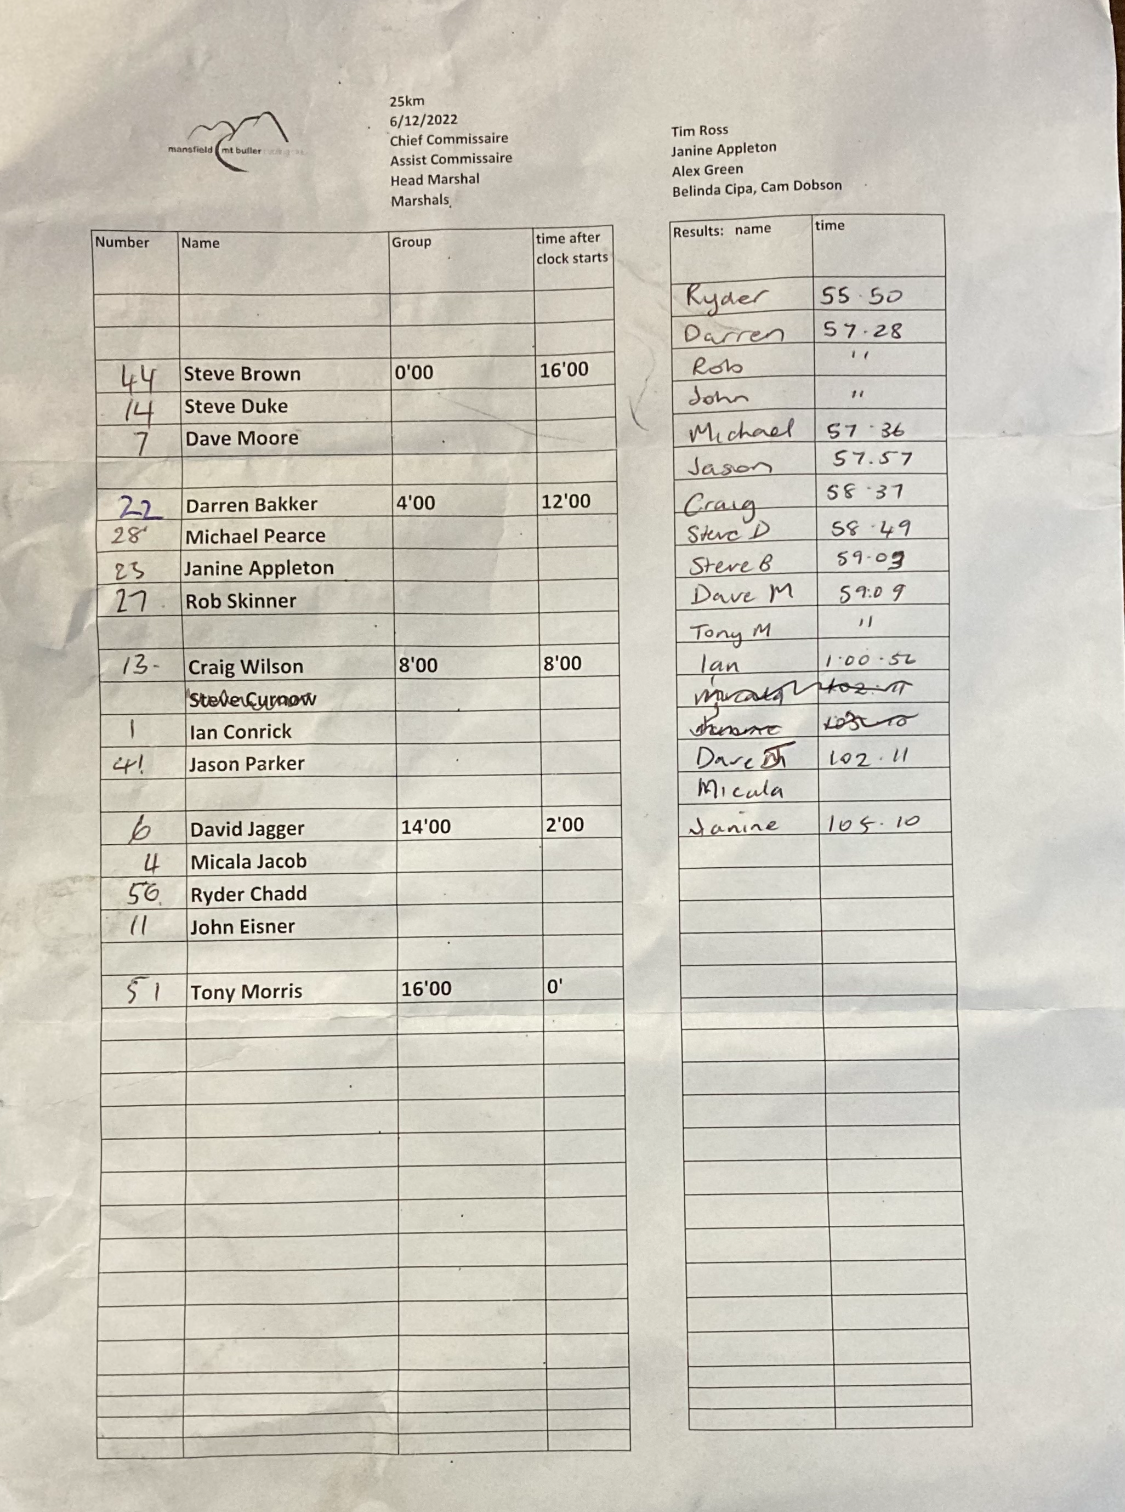 mansfield mt buller
25km
6/12/2022
Chief Commissaire Tim Ross
Assist Commissaire Janine Appleton
Head Marshal Alex Green
Marshals Belinda Cipa, Cam Dobson
Number Name Group time after clock starts
44 Steve Brown 0'00 16'00
14 Steve Duke
7 Dave Moore
22 Darren Bakker 4'00 12'00
28 Michael Pearce
23 Janine Appleton
27 Rob Skinner
13- Craig Wilson 8'00 8'00
Steve Curnow
1 Ian Conrick
41 Jason Parker
6 David Jagger 14'00 2'00
4 Micala Jacob
56 Ryder Chadd
11 John Eisner
51 Tony Morris 16'00 0'
Results: name time
Ryder 55.50
Darren 57.28
Rob "
John "
Michael 57.36
Jason 57.57
Craig 58.37
Steve D 58.49
Steve B 59.03
Dave M 59.09
Tony M "
Ian 1.00.52
Dave 102.11
Micula
Janine 105.10